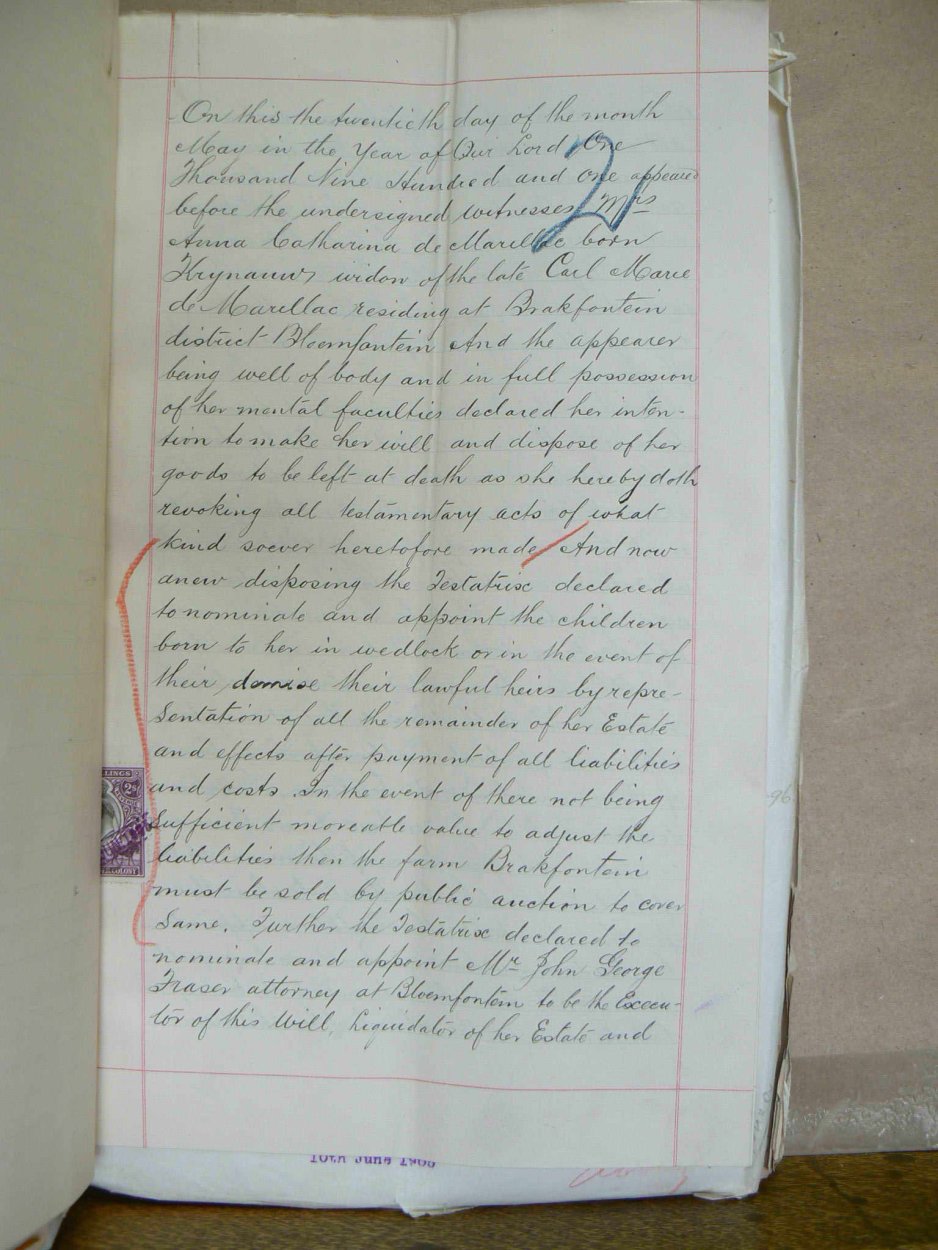 2
On this the twentieth day of the month
May in the Year of Our Lord One
Thousand Nine Hundred and One appeared
before the undersigned witnesses Mrs
Anna Catharina de Marillac born
Krynauw widow of the late Carl Marie
de Marillac residing at Brakfontein
district Bloemfontein And the appearer
being well of body and in full possession
of her mental faculties declared her inten-
tion to make her will and dispose of her
goods to be left at death as she hereby doth
revoking all testamentary acts of what
kind soever heretofore made And now
anew disposing the Testatrix declared
to nominate and appoint the children
born to her in wedlock or in the event of
their demise their lawful heirs by repre-
sentation of all the remainder of her Estate
and effects after payment of all liabilities
and costs. In the event of there not being
sufficient moveable value to adjust the
liabilities then the farm Brakfontein
must be sold by public auction to cover
same. Further the Testatrix declared to
nominate and appoint Mr John George
Fraser attorney at Bloemfontein to be the Execu-
tor of this Will, Liquidator of her Estate and
LLINGS
2s
COLONY
10th June